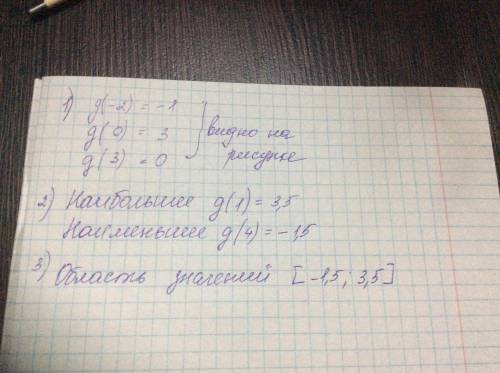 1) g(-2) = -1
g(0) = 3 } видно на
g(3) = 0 рисунке
2) Наибольшее g(1) = 3,5
Наименьшее g(4) = -1,5
3) Область значений [-1,5; 3,5]